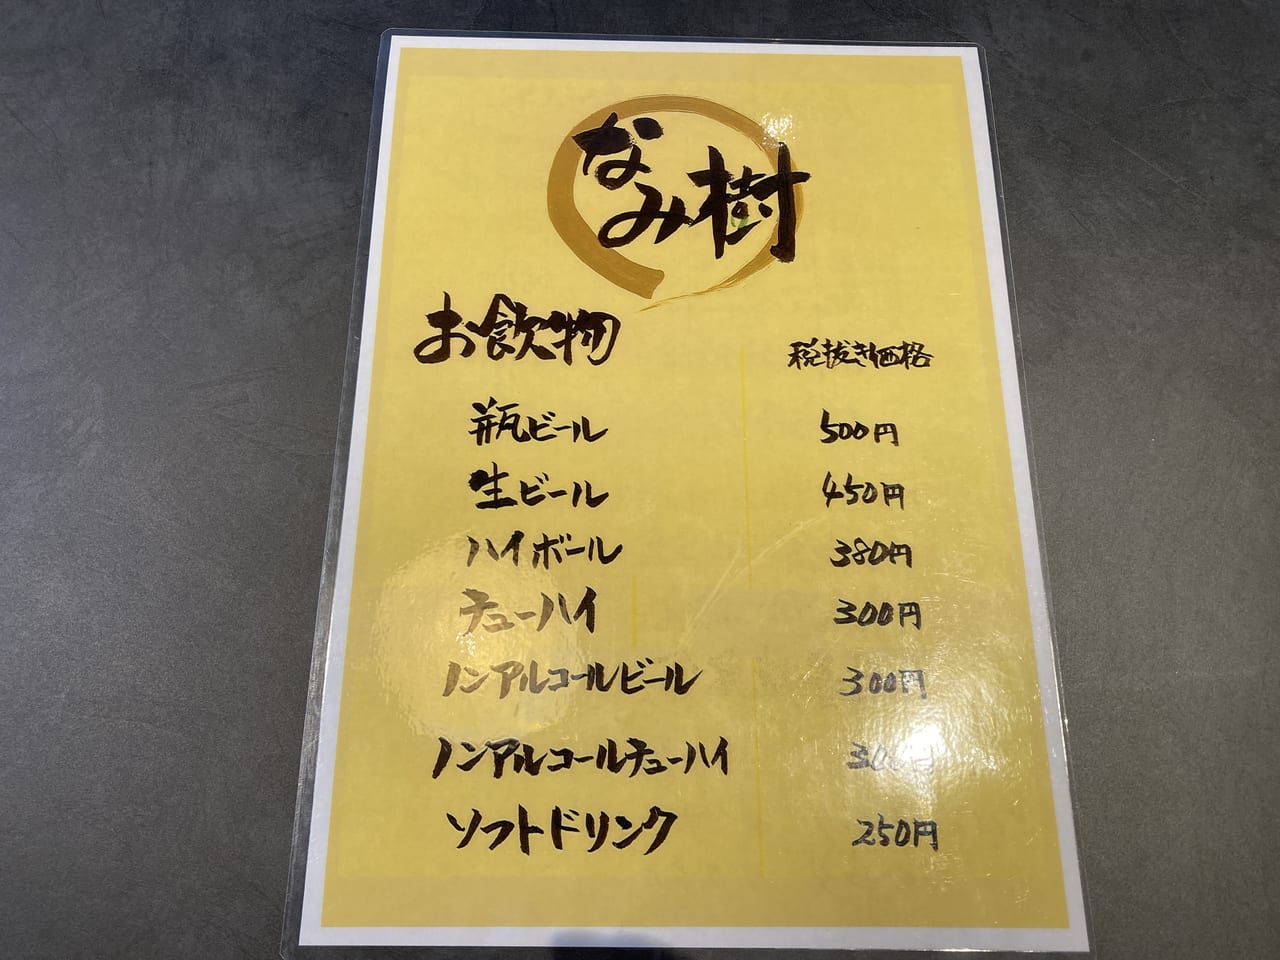 なみ樹
お飲物 税抜き価格
瓶ビール 500円
生ビール 450円
ハイボール 380円
チューハイ 300円
ノンアルコールビール 300円
ノンアルコールチューハイ
ソフトドリンク 250円